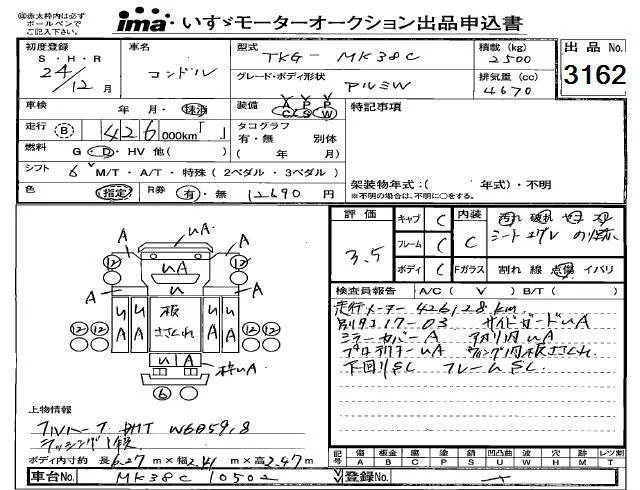 ※赤太枠内は必ず
ボールペンで
ご記入下さい。
ima いすゞモーターオークション出品申込書
初度登録 S・H・R 24/12 月
車名 コンドル
型式 TKG-MK38C
積載(kg) 2500
出品No. 3162
グレード・ボディ形状 アルミW
排気量(cc) 4670
車検 年 月・抹消
装備 A P P C S W
特記事項
走行 B 426,000km「 」
タコグラフ 有・無 別体 ( 年 月)
燃料 G・D・HV 他( )
シフト 6 M/T・A/T・特殊(2ペダル・3ペダル)
架装物年式:( 年式)・不明
※不明の場合は、不明に○をする。
色 (指定) R券 有・無 12690 円
評価 3.5
キャブ C
フレーム C
ボディ C
内装 C
汚れ 破れ
シート
Fガラス 割れ 線 点傷 イバリ
検査員報告 A/C( V ) B/T( )
走行メーター 426128km
別タコ17-03 サイドガードUA
ミラーカバーA UA
UA 内板ささくれ
下回りSC フレームSC
A UA A
12 12
UA
A U A
UA UA 板ささくれ UA UA
12 12 12 12
U|A 枠UA
6
上物情報
W6859,8
ラッシング
ボディ内寸約 長6.27m×幅2.41m×高2.47m
車台No. MK38C 10502
登録No.
記号 傷A 板金B 腐C 塗P 錆S 凹凸曲U 波W 穴H 跡M レツ割T